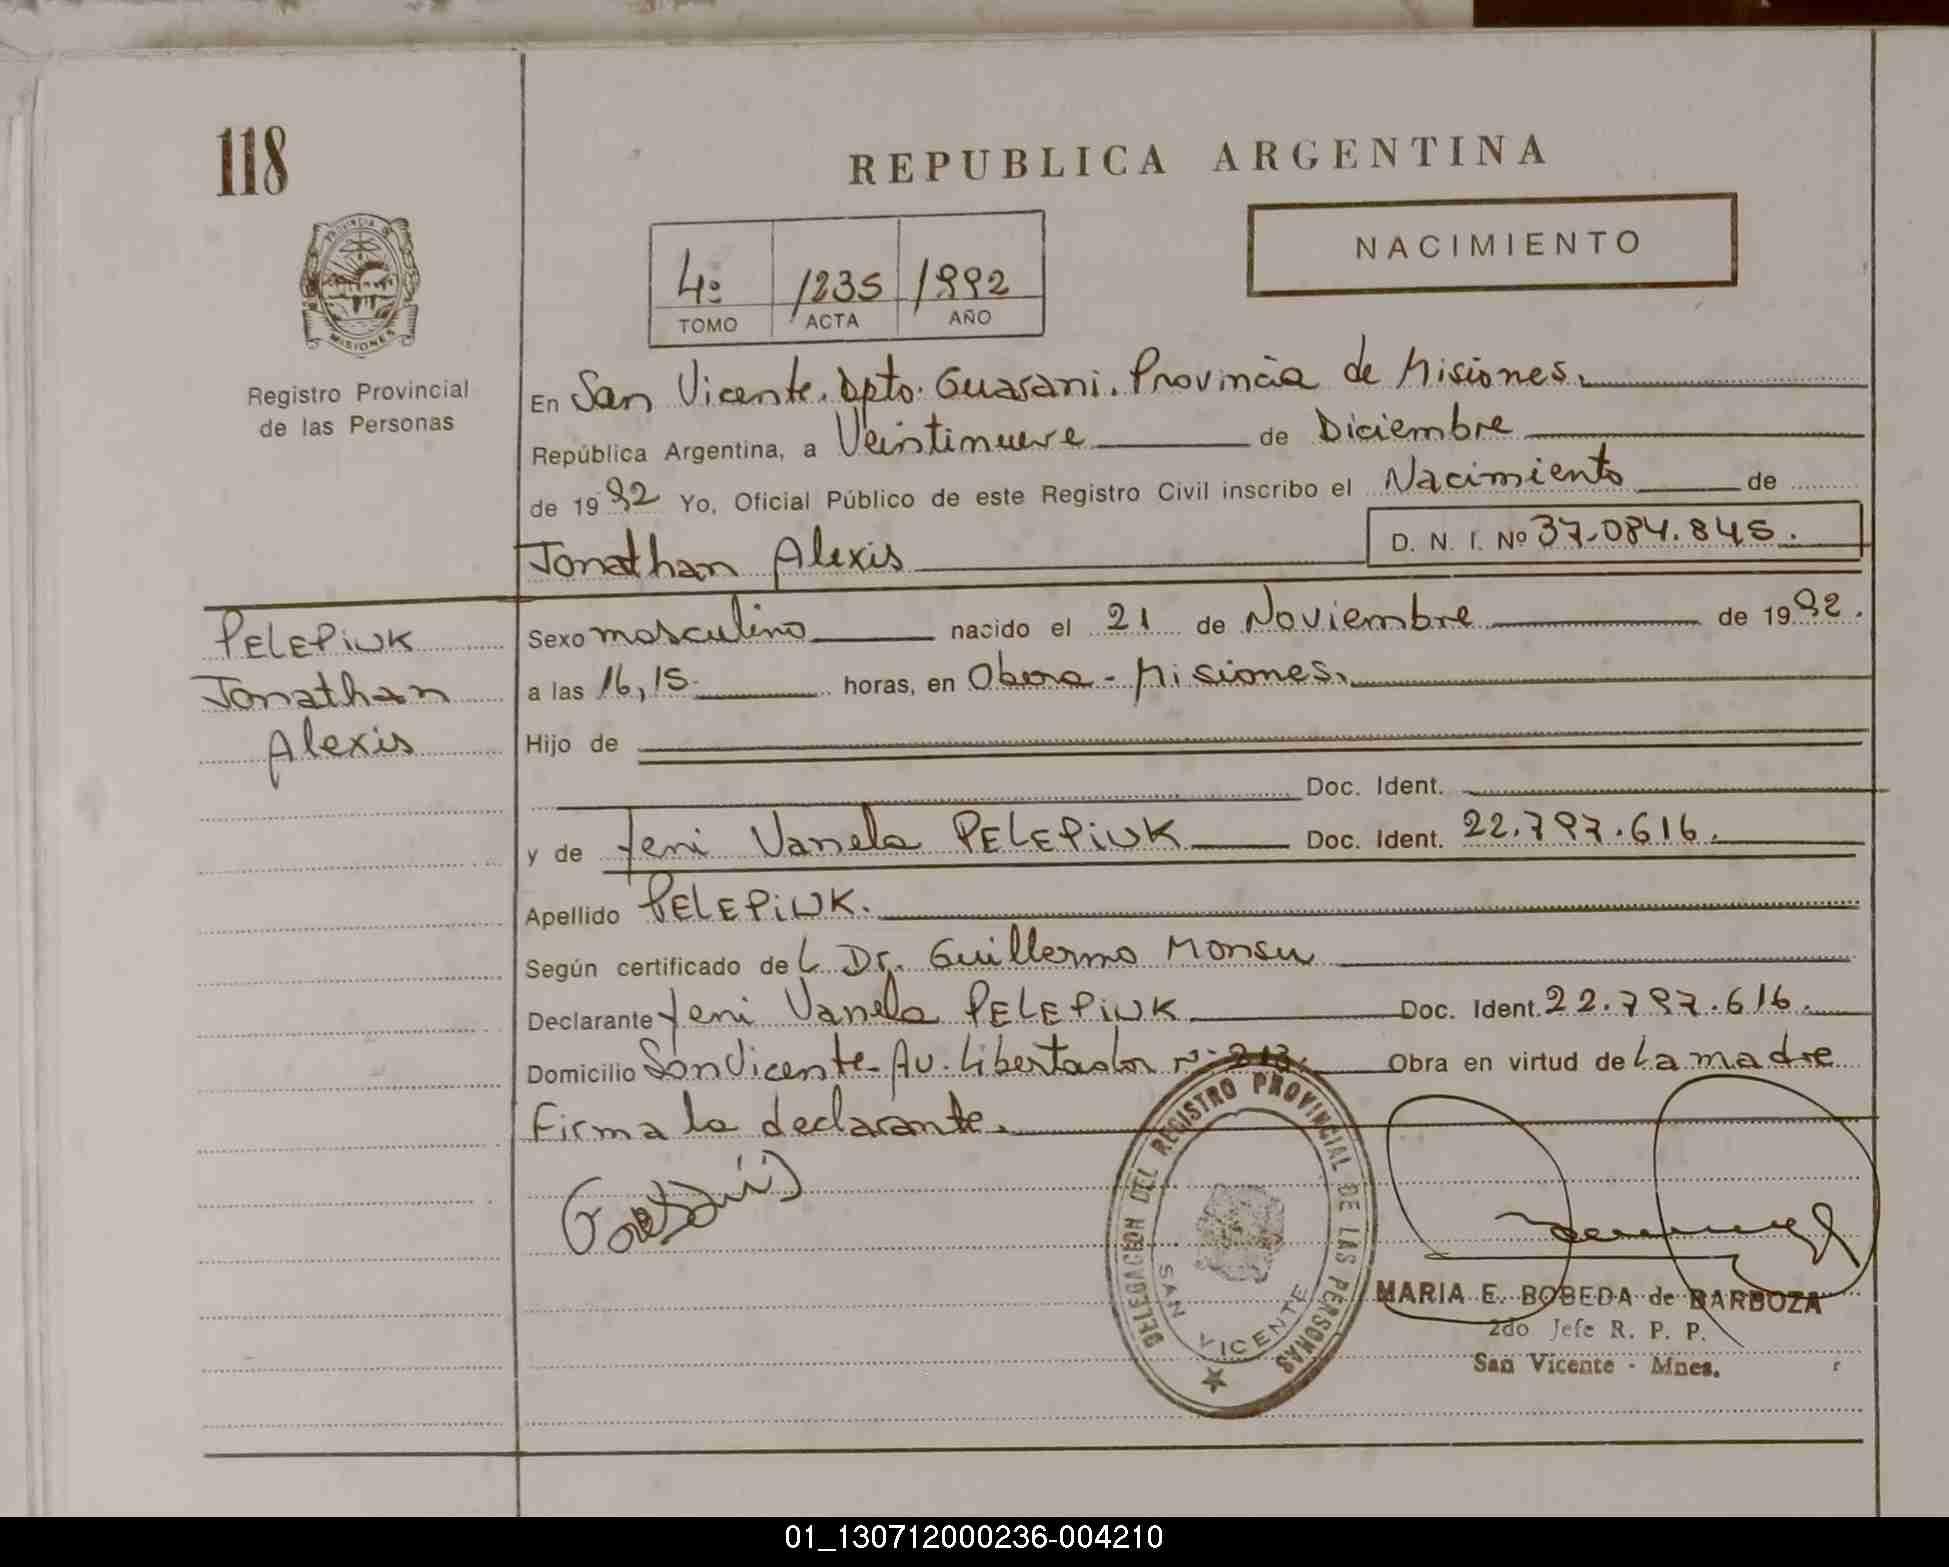 118
REPUBLICA ARGENTINA
NACIMIENTO
4º 1235 1992
TOMO ACTA AÑO
PROVINCIA DE MISIONES
Registro Provincial
de las Personas
En San Vicente. Dpto. Guarani. Provincia de Misiones.
República Argentina, a Veintinueve de Diciembre
de 1992 Yo, Oficial Público de este Registro Civil inscribo el Nacimiento de
Jonathan Alexis D. N. I. Nº 37.084.845.
PELEPiUK
Jonathan
Alexis
Sexo masculino nacido el 21 de Noviembre de 1992.
a las 16,15 horas, en Obera - Misiones.
Hijo de
Doc. Ident.
y de Yeni Vanela PELEPiUK Doc. Ident. 22.797.616.
Apellido PELEPiUK.
Según certificado del Dr. Guillermo Monsu
Declarante Yeni Vanela PELEPiUK Doc. Ident. 22.797.616.
Domicilio San Vicente - Av. Libertador nº 213. Obra en virtud de La madre
Firma la declarante.
DELEGACION DEL REGISTRO PROVINCIAL DE LAS PERSONAS
SAN VICENTE
MARIA E. BOBEDA de BARBOZA
2do Jefe R. P. P.
San Vicente - Mnes.
01_130712000236-004210